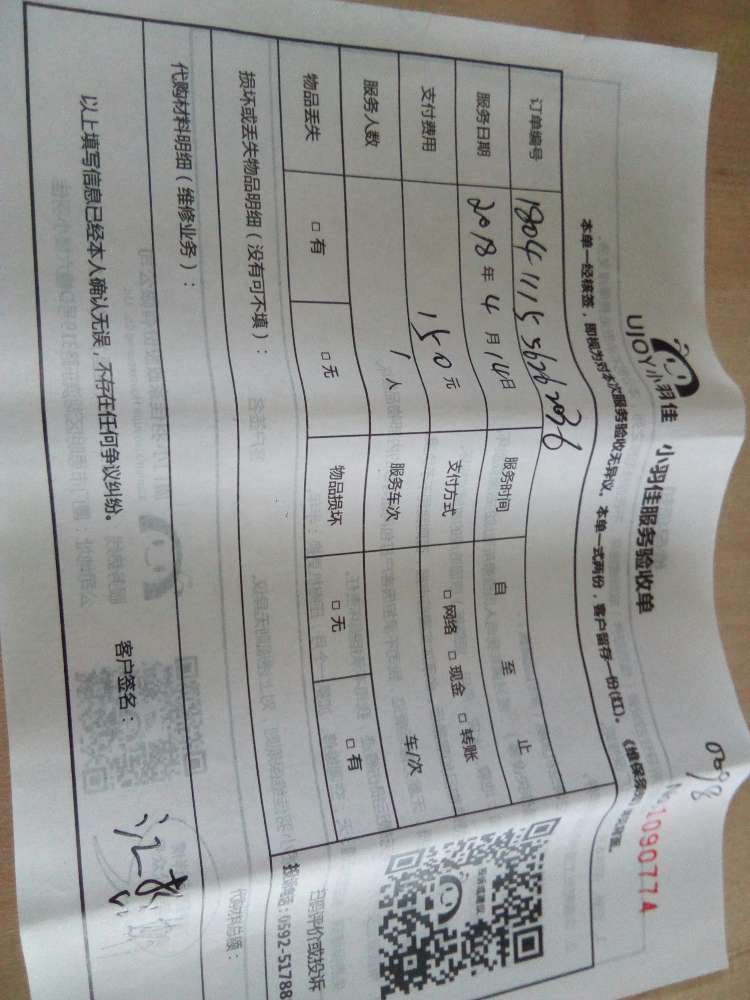 0098
UJOY小羽佳 小羽佳服务验收单
No.1090774
本单一经核签，即视为对本次服务验收无异议。本单一式两份，客户留存一份(红)。
订单编号
服务时间 自 至 止
服务日期 2018年4月14日
支付方式 □网络 □现金 □转账
支付费用 150元
服务车次 车/次
服务人数 1人
物品丢失 □有 □无 物品损坏 □无 □有
投诉或建议
扫码评价或投诉
损坏或丢失物品明细（没有可不填）：
代购材料明细（维修业务）：
以上填写信息已经本人确认无误，不存在任何争议纠纷。
客户签名：